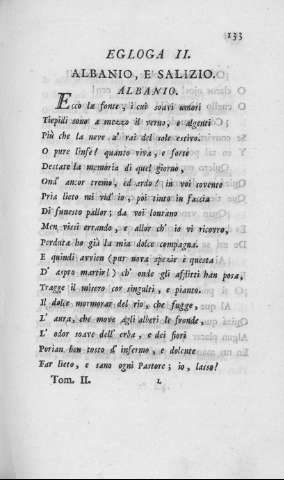 133
EGLOGA II.
ALBANIO, E SALIZIO.
ALBANIO.
Ecco la fonte, i cui soavi umori
Tiepidi sono a mezzo il verno, e algenti
Più che la neve a' rai del sole estivo.
O pure linfe! quanto viva, e forte
Destate la memoria di quel giorno,
Ond' ancor tremo, ed ardo! in voi sovente
Pria lieto mi vid' io; poi tinto in faccia
Di funesto pallor; da voi lontano
Men vissi errando, e allor ch' io vi ricovro,
Perduta ho già la mia dolce compagna.
E quindi avvien (pur nova spezie è questa
D' aspro martir!) ch' onde gli afflitti han posa,
Tragge il misero cor singulti, e pianto.
Il dolce mormorar del rio, che fugge,
L' aura, che move agli alberi le fronde,
L' odor soave dell' erba, e dei fiori
Porian han tosto d' infermo, e dolente
Far lieto, e sano ogni Pastore; io, lasso!
Tom. II. I.